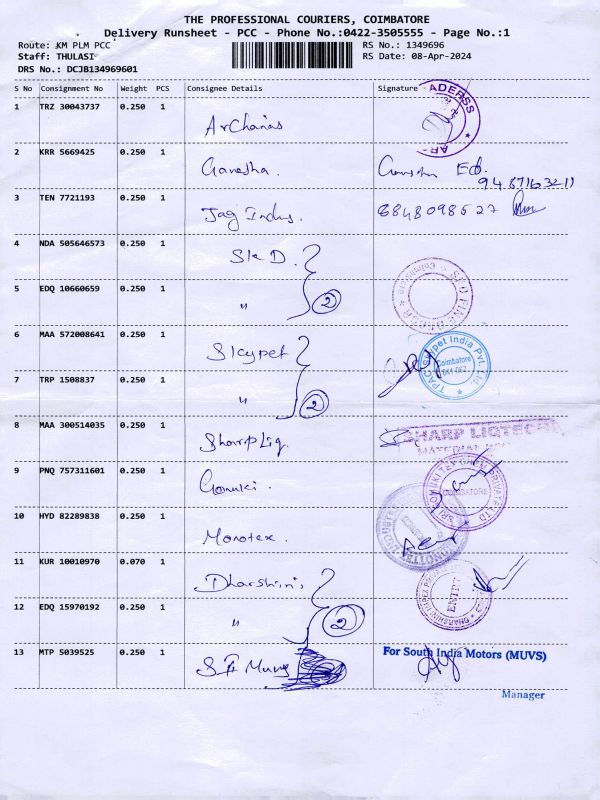 THE PROFESSIONAL COURIERS, COIMBATORE
Delivery Runsheet - PCC - Phone No.:0422-3505555 - Page No.:1
Route: KM PLM PCC RS No.: 1349696
Staff: THULASI RS Date: 08-Apr-2024
DRS No.: DCJB134969601
S No Consignment No Weight PCS Consignee Details Signature
1 TRZ 30043737 0.250 1 Archanas
2 KRR 5669425 0.250 1 Ganesha.
9487163211
3 TEN 7721193 0.250 1 Jag Indus. 6848098527
4 NDA 505646573 0.250 1 Sk D.
5 EDQ 10660659 0.250 1 " 2
6 MAA 572008641 0.250 1 Skypet Coimbatore
7 TRP 1508837 0.250 1 " 2
8 MAA 300514035 0.250 1 Sharp Liq. SHARP LIQTECH
MATERIAL
9 PNQ 757311601 0.250 1 Gomuki. COIMBATORE
10 HYD 82289838 0.250 1 Monotex.
11 KUR 10010970 0.070 1 Dharshini ENTRY
12 EDQ 15970192 0.250 1 " 2
13 MTP 5039525 0.250 1 Muvs For South India Motors (MUVS)
Manager